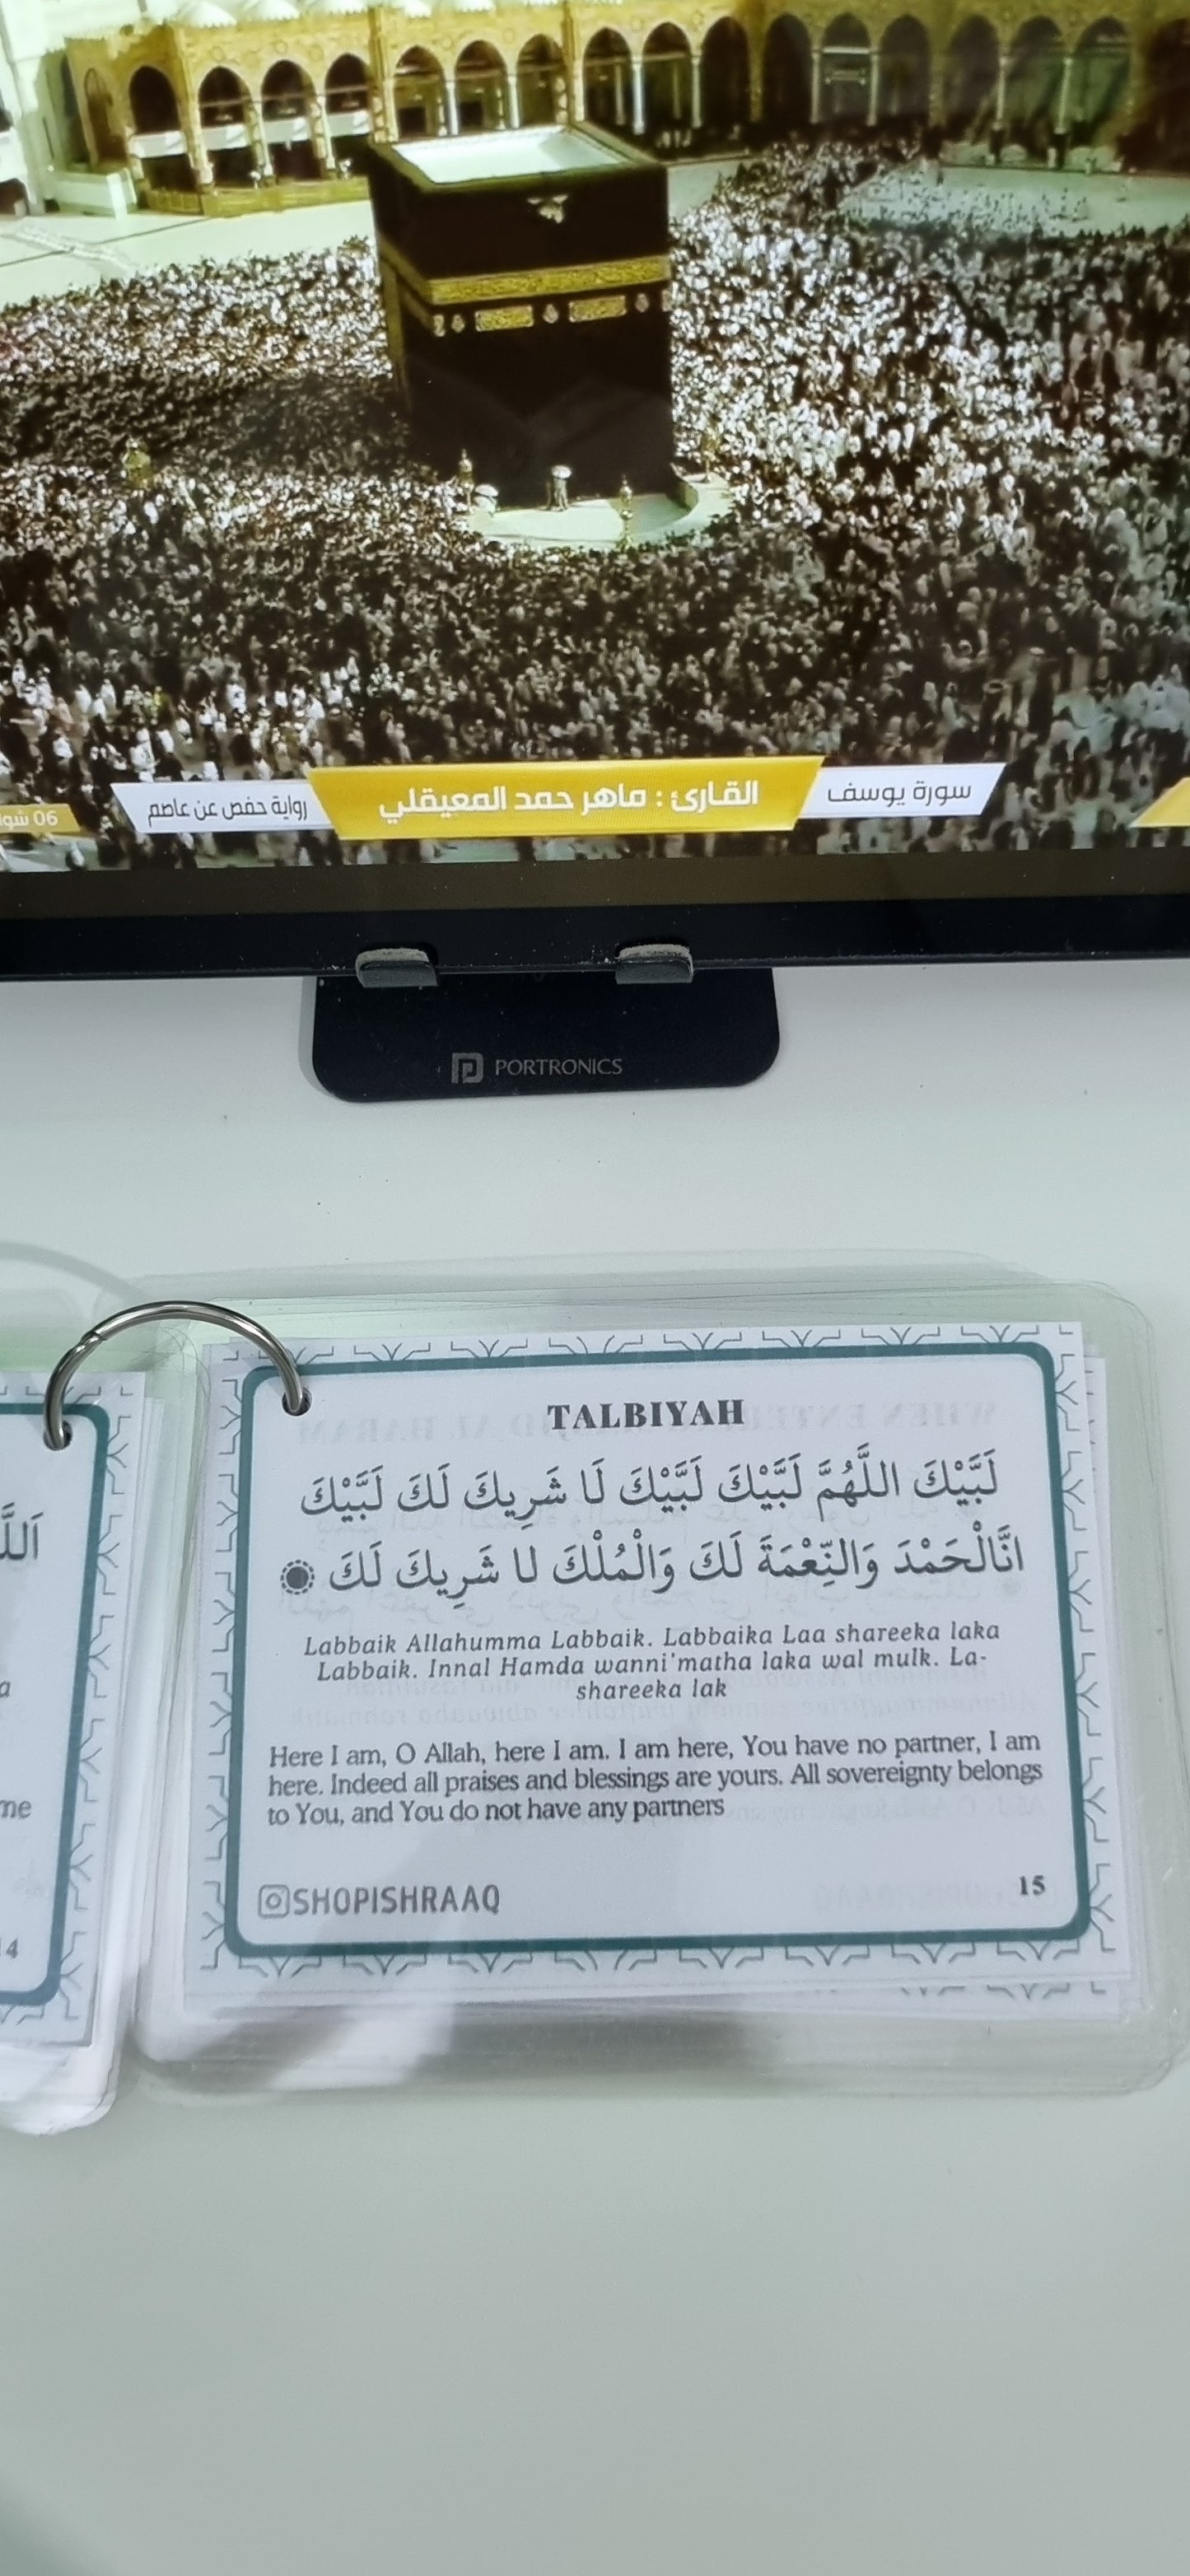 سورة يوسف
القارئ : ماهر حمد المعيقلي
رواية حفص عن عاصم
06
PORTRONICS
TALBIYAH
لَبَّيْكَ اللَّهُمَّ لَبَّيْكَ لَبَّيْكَ لَا شَرِيكَ لَكَ لَبَّيْكَ
انَّالْحَمْدَ وَالنِّعْمَةَ لَكَ وَالْمُلْكَ لا شَرِيكَ لَكَ
Labbaik Allahumma Labbaik. Labbaika Laa shareeka laka
Labbaik. Innal Hamda wanni'matha laka wal mulk. La-
shareeka lak
Here I am, O Allah, here I am. I am here, You have no partner, I am
here. Indeed all praises and blessings are yours. All sovereignty belongs
to You, and You do not have any partners
SHOPISHRAAQ
15